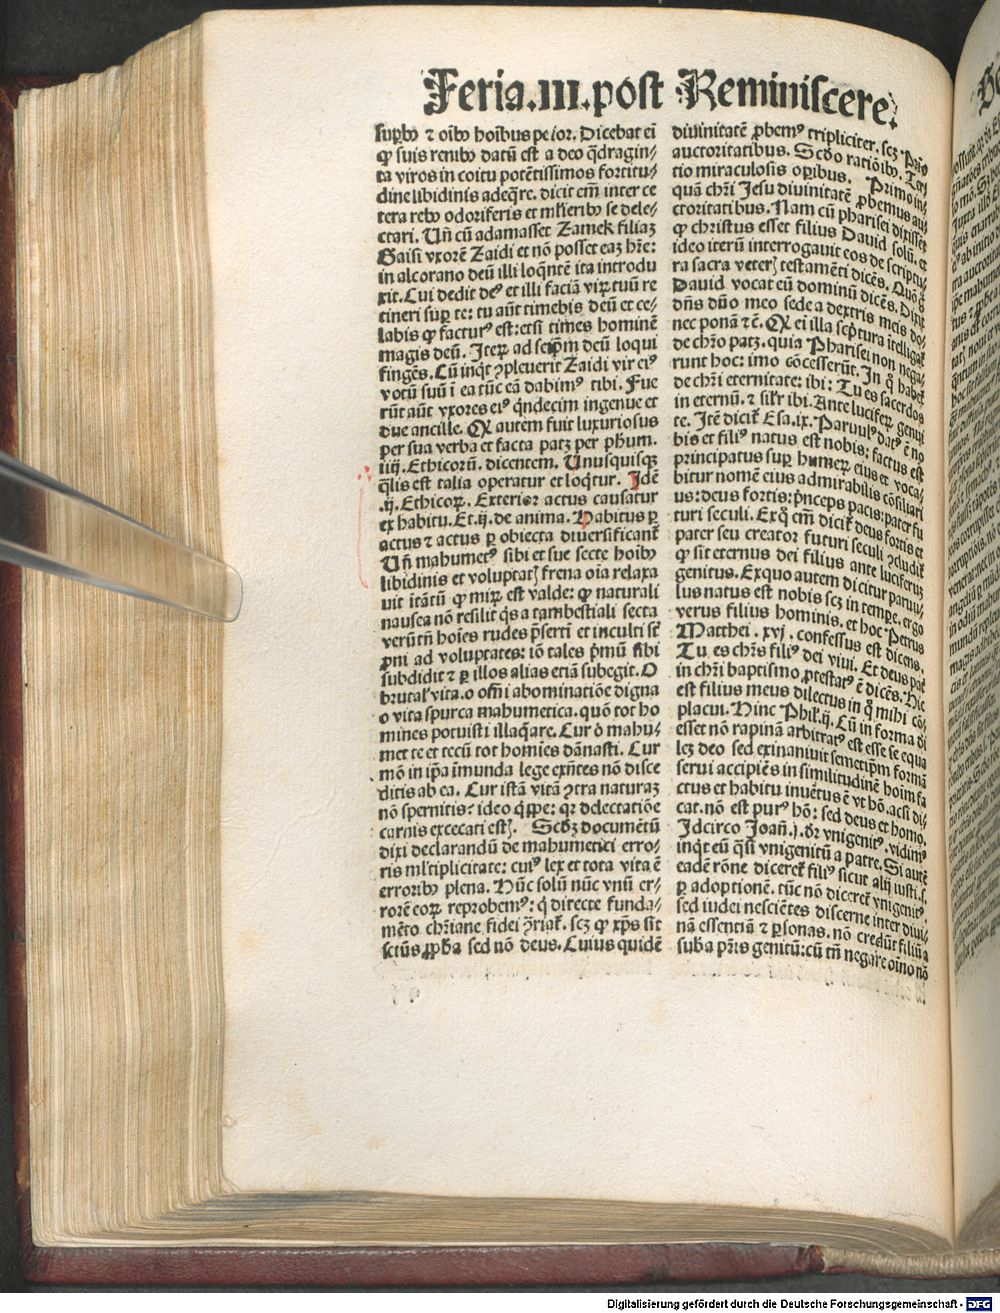 Feria.III.post Reminiscere.
supbꝰ ⁊ oībꝰ hoībus peior. Dicebat eī
ꝙ suis renibꝰ datū est a deo q̄dragin⸗
ta viros in coitu potētissimos fortitu⸗
dine libidinis adeq̄re. dicit em̄ inter ce
tera rebꝰ odoriferis et ml̓ieribꝰ se dele⸗
ctari. Un̄ cū adamasset Zamek filiaꝫ
Gaisi vxorē Zaidi et nō posset eaꝫ hr̄e:
in alcorano deū illi loq̄ntē ita introdu
xit. Cui dedit deꝰ et illi faciā virꝫ tuū re
tineri suꝑ te: tu aūt timebis deū et ce⸗
labis ꝙ facturꝰ est: etsi times hominē
magis deū. Iteꝝ ad seip̄m deū loqui
fingēs. Cū inq̄t ꝯpleuerit Zaidi vir eiꝰ
votū suū ī ea tūc eā dabimꝰ tibi. Fue
rūt aūt vxores eiꝰ q̄ndecim ingenue et
due ancille. Ꝙ autem fuit luxuriosus
per sua verba et facta patꝫ per ph̄um.
iiij. Ethicorū. dicentem. Unusquisqꝫ
q̄lis est talia operatur et loq̄tur. Idē
.ij. Ethicoꝝ. Exterior actus causatur
ex habitu. Et.ij. de anima. Habitus ꝑ
actus ⁊ actus ꝑ obiecta diuersificant̄
Un̄ mahumetꝰ sibi et sue secte hoībꝰ
libidinis et voluptatꝭ frena oīa relaxa
uit ītātū ꝙ miꝝ est valde: ꝙ naturali
nausea nō resilit q̓s a tam bestiali secta
verūtn̄ hoīes rudes p̄serti et inculti sūt
ꝓni ad voluptates: iō tales p̄mū sibi
subdidit ⁊ ꝑ illos alias etiā subegit. O
brutal̓ vita. o om̄i abominatiōe digna
o vita spurca mahumetica. quō tot ho
mines potuisti illaq̄are. Cur o mahu⸗
met te et tecū tot homīes dānasti. Cur
mō in ip̄a īmunda lege exn̄tes nō disce
ditis ab ea. Cur istā vitā ꝯtra naturaꝫ
nō spernitis: ideo q̓ppe: qꝛ delectatiōe
carnis excecati estꝭ. Scdꝫ documētū
dixi declarandū de mahumetici erro⸗
ris ml̓tiplicitate: cuiꝰ lex et tota vita ē
erroribꝰ plena. Nūc solū nūc vnū er⸗
rorē eoꝝ reprobemꝰ: q̓ directe funda⸗
mēto chr̄iane fidei ꝯriat̄. scꝫ ꝙ xp̄s sit
sctūs ꝓph̄a sed nō deus. Cuius quidē
diuinitatē ꝓbemꝰ tripliciter. scꝫ Prīo
auctoritatibus. Scd̄o ratiōibꝰ. Ter
tio miraculosis oꝑibus. Primo in⸗
quā chr̄i Iesu diuinitatē ꝓbemus au⸗
ctoritatibus. Nam cū pharisei dixissēt
ꝙ christus esset filius Dauid solū. et
ideo iterū interrogauit eos de scriptu⸗
ra sacra veterꝭ testamēti dicēs. Quō ḡ
Dauid vocat eū dominū dicēs. Dixit
dn̄s dn̄o meo sede a dextris meis do⸗
nec ponā ⁊ c̄. Ꝙ ei illa scp̄tura ītelligat̄
de chr̄o patꝫ. quia Pharisei non nega⸗
runt hoc: imo cōcesserūt. In q̊ habet̄
de chr̄i eternitate: ibi: Tu es sacerdos
in eternū. ⁊ sil̓r ibi. Ante luciferꝝ genui
te. Itē dicit̄ Esa.ix. Paruulꝰ datꝰ ē no
bis et filiꝰ natus est nobis: factus est
principatus suꝑ humeꝝ eius et voca⸗
bitur nomē eius admirabilis cōsiliari
us: deus fortis: p̄nceps pacis: pater fu
turi seculi. Ex q̊ em̄ dicit̄ deus fortis et
pater seu creator futuri seculi ꝯcludit̄
ꝙ sit eternus dei filius ante luciferuꝫ
genitus. Ex quo autem dicitur paruu⸗
lus natus est nobis scꝫ in tempe. ergo
verus filius hominis. et hoc Petrus
Matthei. xvj. confessus est dicens.
Tu. es chr̄s filiꝰ dei viui. Et deus pat̄
in chr̄i baptismo ꝓtestatꝰ ē dicēs. Hic
est filius meus dilectus in q̊ mihi cō⸗
placui. Hinc Phil̓.ij. Cū in forma di
esset nō rapinā arbitratꝰ est esse se equa
leꝫ deo sed exinaniuit semetip̄m formā
serui accipiēs in similitudinē hoīm fa
ctus et habitu inuētus ē vt hō. ac si di⸗
cat. nō est purꝰ hō: sed deus et homo.
Idcirco Joan̄.j. dr̄ vnigenitꝰ. vidimꝰ
inq̄t eū q̄si vnigenitū a patre. Si autē
eadē rōne diceret̄ filiꝰ sicut alij iusti.s.
ꝑ adoptionē. tūc nō diceret̄ vnigenitꝰ.
sed iudei nesciētes discerne inter diui⸗
nā essentiā ⁊ ꝑsonas. nō credūt filiū a
suba pr̄is genitū: cū tn̄ negare oīno nō
Digitalisierung gefördert durch die Deutsche Forschungsgemeinschaft - DFG